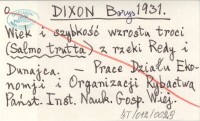 DIXON Borys 1931.
Wiek i szybkość wzrostu troci
(Salmo trutta) z rzeki Redy i
Dunajca. — Prace Działu Eko-
nomji i Organizacji Rybactwa
Państ. Inst. Nauk. Gosp. Wiej.